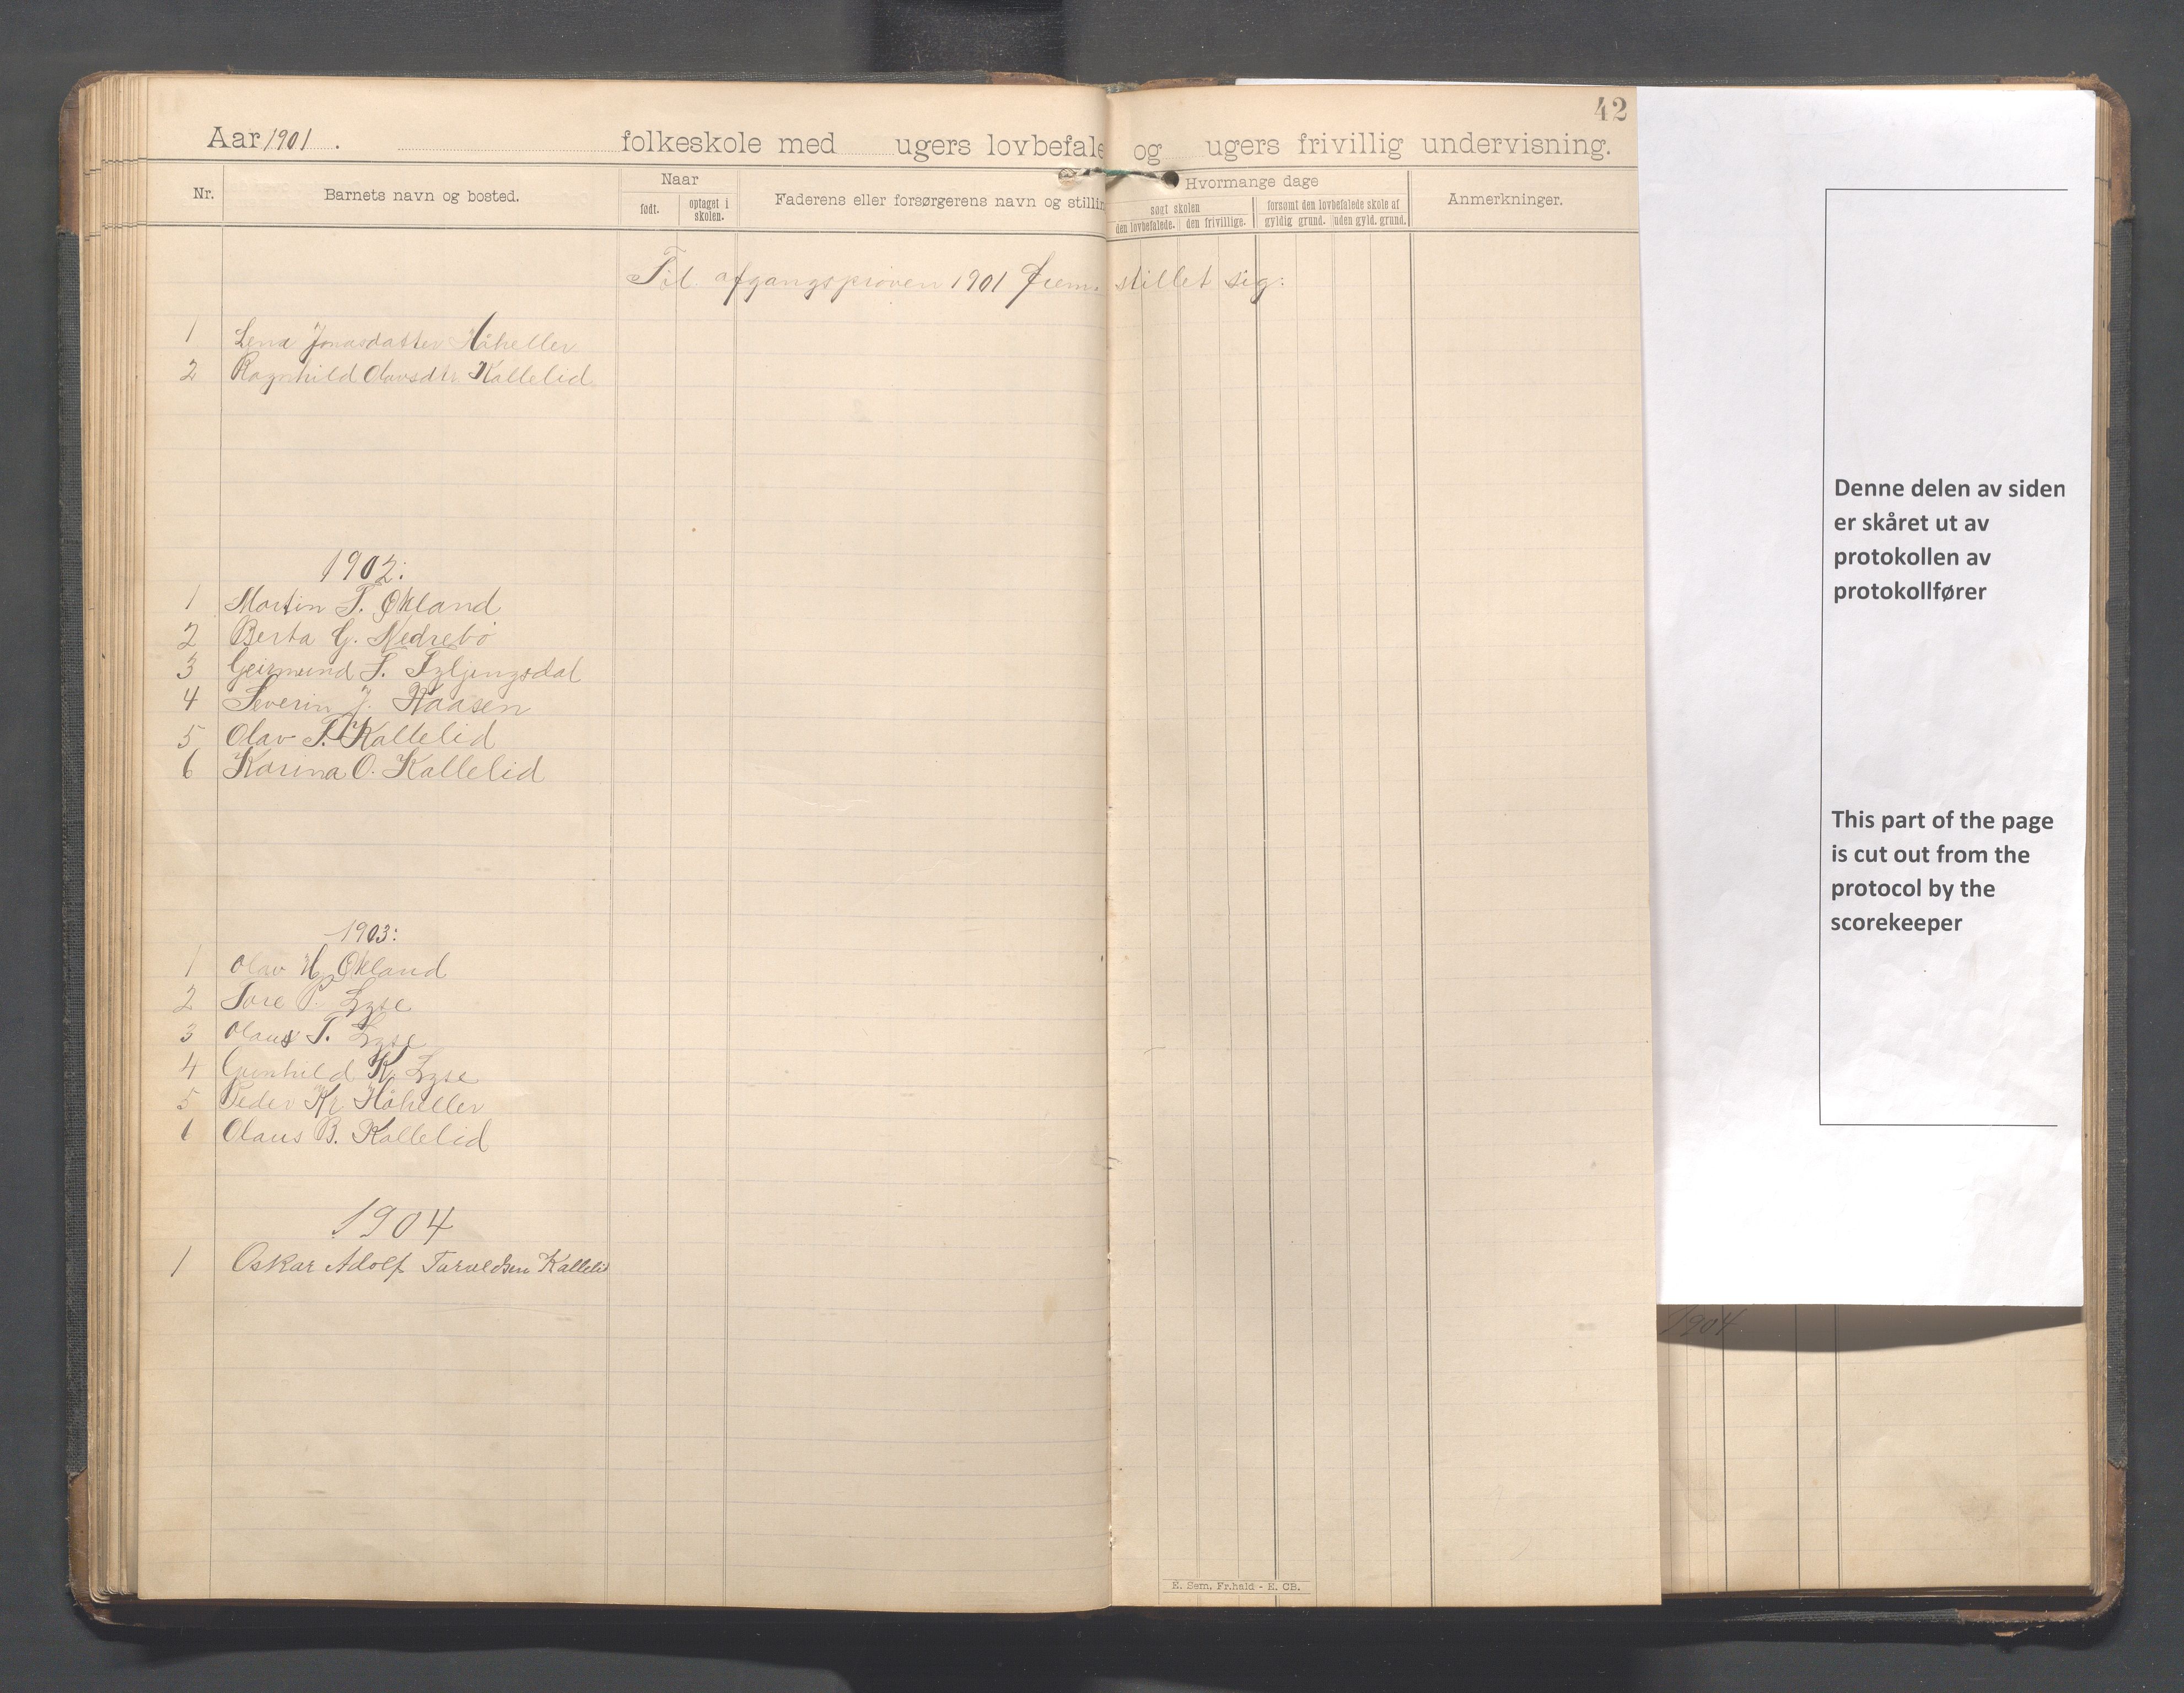 42
Aar 1901. folkeskole med ugers lovbefale og ugers frivillig undervisning.
Nr. Barnets navn og bosted. Naar født. optaget i skolen. Faderens eller forsørgerens navn og stillin Hvormange dage søgt skolen den lovbefalede. den frivillige. forsømt den lovbefalede skole af gyldig grund. uden gyld. grund. Anmerkninger.
Til afgangsprøven 1901 frem stillet sig:
1 Lena Jonasdatter Håheller
2 Ragnhild Olavsdtr Kallelid
1902:
1 Martin T. Økland
2 Berta G. Nedrebø
3 Geirmund S.
4 Severin J. Kaasen
5 Olav T. Kallelid
6 Karina O. Kallelid
1903:
1 Olav H. Økland
2 Tore P. Lyse
3 Olaus T. Lyse
4 Gunhild K. Lyse
5 Peder Kr. Håheller
6 Olaus B. Kallelid
1904
1 Oskar Adolf Kallelid
E. Sem, Fr.hald - E. CB.
Denne delen av siden
er skåret ut av
protokollen av
protokollfører
This part of the page
is cut out from the
protocol by the
scorekeeper
1904